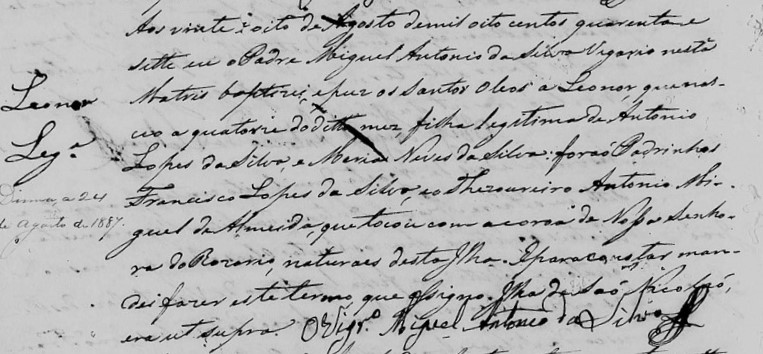 Aos vinte e oito de Agosto de mil oito centos quarenta e
sette eu o Padre Miguel Antonio da Silva Vigario nesta
Matris baptizei, e puz os Santos Oleos a Leonor, que nas-
Leonor
ceo a quatorze do ditto mez, filha legitima de Antonio
Leg.ª
Lopes da Silva, e Maria Neves da Silva: foraõ Padrinhos
a 24
de Agosto de 1887.
Francisco Lopes da Silva, e o Thezoureiro Antonio Mi-
guel de Almeida, que tocou com a coroa de Nossa Senho-
ra do Rozario, naturaes desta Ilha. E para constar man-
dei fazer este termo, que assigno. Ilha de Saõ Nicoláo,
era ut supra. O Vigr.º Miguel Antonio da Silva